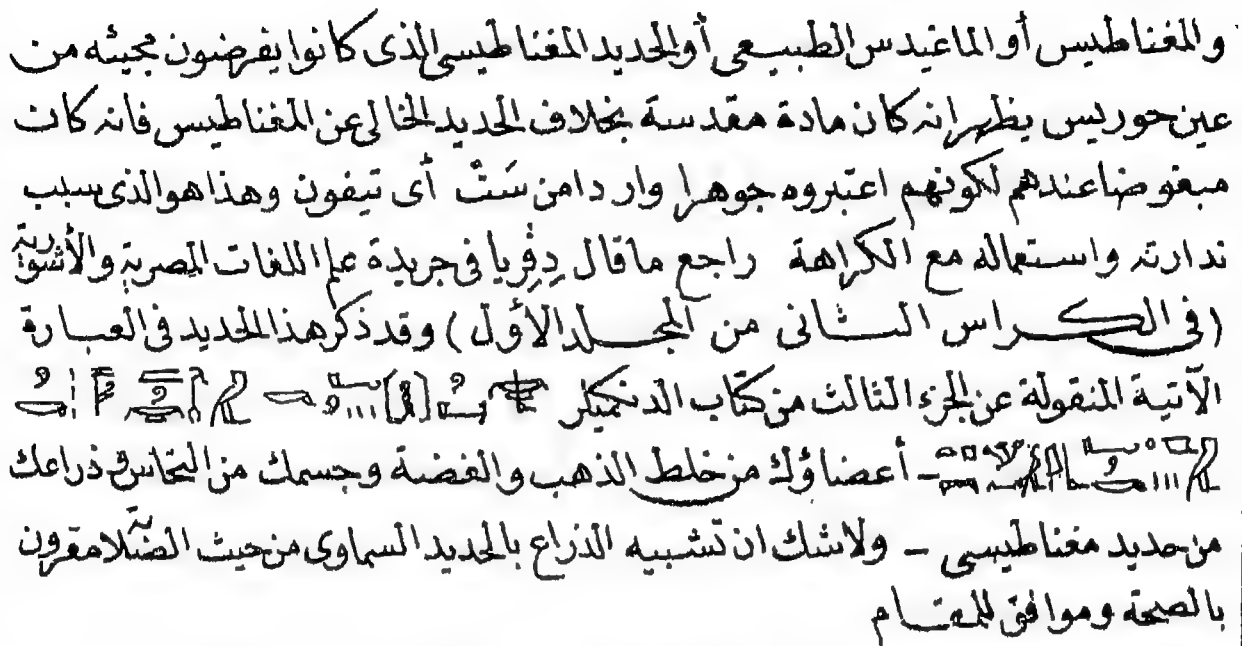 والمغناطيس أو الماغيدس الطبيعى أو الحديد المغناطيسى الذى كانوا يفرضون مجيئه من
عين حوريس يظهر انه كان مادة مقدسة بخلاف الحديد الخالى عن المغناطيس فانه كان
مبغوضا عندهم لكونهم اعتبروه جوهرا واردا من سَتْ أى تيفون وهذا هو الذى سبب
ندارته واستعماله مع الكراهة راجع ما قال دِڤريا فى جريدة علم اللغات المصرية والأشورية
(فى الكراس الثانى من المجلد الأول) وقد ذكر هذا الحديد فى العبارة
الآتية المنقولة عن الجزء الثالث من كتاب الدنكميلر
ـ أعضاؤك من خلط الذهب والفضة وجسمك من النحاس وذراعك
من حديد مغناطيسى ـ ولا شك ان تشبيه الذراع بالحديد السماوى من حيث الصلابة مقرون
بالصحة وموافق للمقام